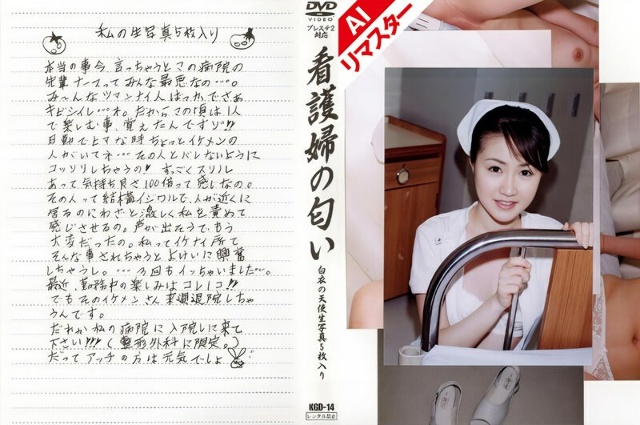 私の生写真5枚入り
本当の事今、言っちゃうとこの病院の
先輩ナースってみんな最悪なの…。
み〜んなツマンナイ人ばっかでさぁ
キビシイし…ネ。だからこの頃は1人
で楽しむ事、覚えたんですヅ!!
日勤でヒマな時ちょっとイケメンの
人がいてネ…その人とバレないように
コッソリしちゃうの!! すっごくスリル
あって気持ち良さ100倍って感じなの。
その人って結構イジワルで、人が近くに
居るのにわざと激しく私を責めて
感じさせるの。声が出そうで、もう
大変だったの。私ってイケナイ所で
そんな事されちゃうとよけいに興奮
しちゃうし。…3回もイッちゃいました…。
最近、勤務中の楽しみはコレコレ!!
でもそのイケメンさん来週退院しちゃ
うんです。
だれか私の病院に入院しに来て
下さい!!!(整形外科に限定。)
だってアッチの方は元気でしょ
DVD
VIDEO
プレステ2
対応
看護婦の匂い
白衣の天使生写真5枚入り
KGD-14
レンタル禁止
AI
リマスター